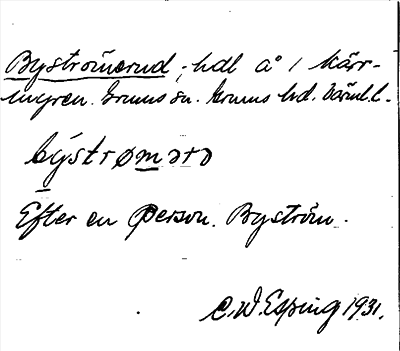 Byströmerud, hdl å 1 Kärr-
myren. Grums sn. Grums hd. Värml. l.
býstrømərɷ
Efter en person. Byström.
C.W. Esping 1931.